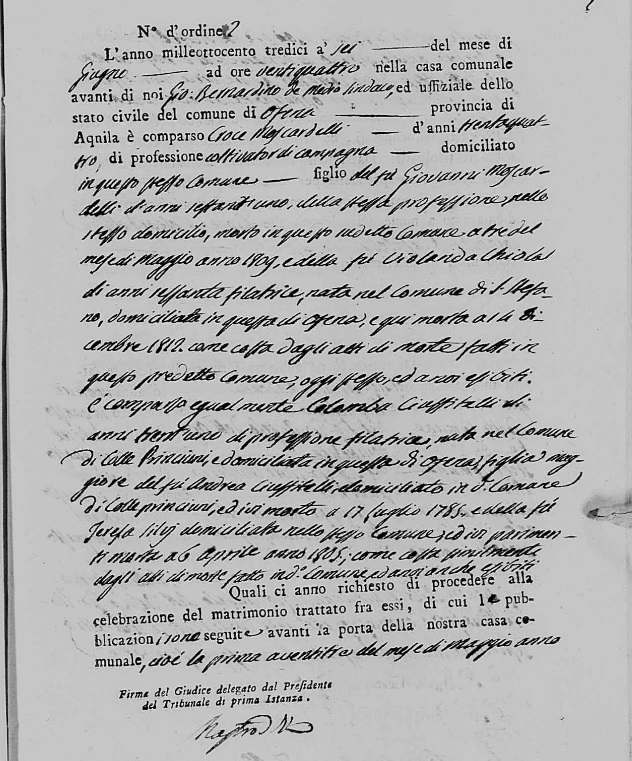 N° d'ordine 2
L'anno milleottocento tredici a' sei del mese di
Giugno ad ore ventiquattro nella casa comunale
avanti di noi Gio: Bernardino de Medio sindaco, ed uffiziale dello
stato civile del comune di Ofena provincia di
Aquila è comparso Croce Moscardelli d'anni trentaquat-
tro, di professione coltivator di campagna domiciliato
in questo stesso Comune figlio del fù Giovanni Moscar-
delli d'anni sessant'uno, della stessa professione, nello
stesso domicilio, morto in questo sudetto Comune a tre del
mese di Maggio anno 1809, e della fù Violanda Chiola
di anni sessanta filatrice, nata nel Comune di S. Stefa-
no, domiciliata in questa di Ofena, e qui morta a 14 di-
cembre 1812. come costa dagli atti di morte fatti in
questo predetto Comune, oggi stesso, ed a noi esibiti.
È comparsa egualmente Colomba Ciuffitelli di
anni trent'uno di professione filatrice, nata nel Comune
di Colle Princiuni, e domiciliata in questa di Ofena, figlia mag-
giore del fù Andrea Ciuffitelli, domiciliato in d.° Comune
di Colle princiuni, ed ivi morto a 17 luglio 1785. e della fù
Teresa Silvj domiciliata nello stesso Comune, ed ivi parimen-
ti morta a 6 Aprile anno 1805, come costa
dagli atti di morte fatto in d.° Comune, ed a noi anche esibiti
Quali ci anno richiesto di procedere alla
celebrazione del matrimonio trattato fra essi, di cui le pub-
blicazioni sono seguite avanti la porta della nostra casa co-
munale, cioè la prima a ventitre del mese di Maggio anno
Firma del Giudice delegato dal Presidente
del Tribunale di prima Istanza.